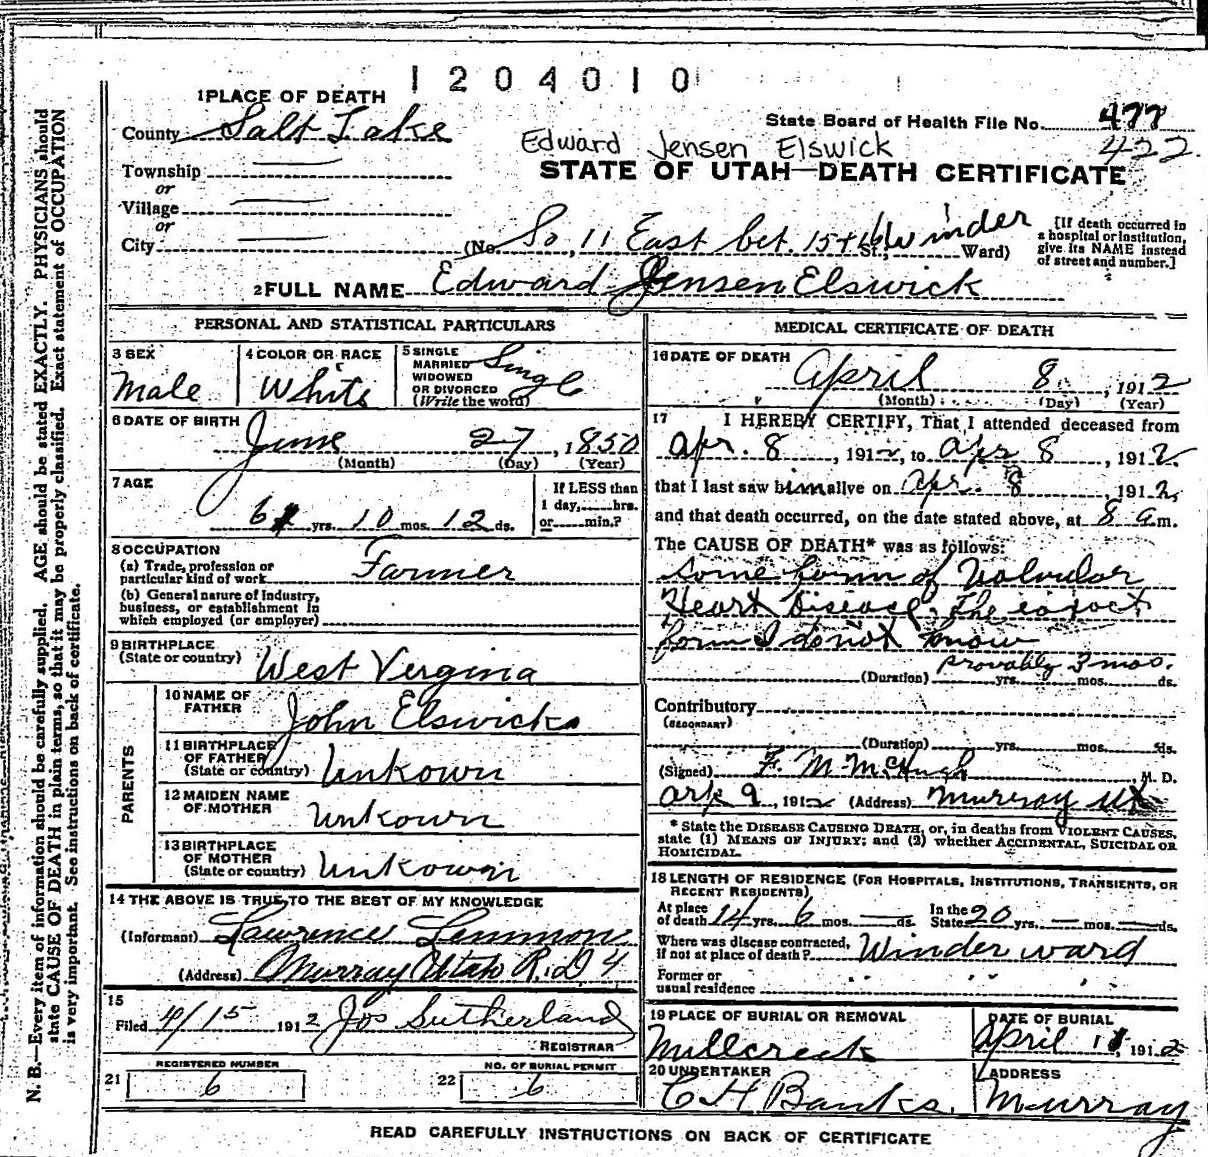 1204010
1 PLACE OF DEATH
County Salt Lake
State Board of Health File No. 477
422
Edward Jensen Elswick
Township
or
Village
or
City
STATE OF UTAH—DEATH CERTIFICATE
(No. So. 11 East bet. 15 + 16 St., Winder Ward)
[If death occurred in a hospital or institution, give its NAME instead of street and number.]
2 FULL NAME Edward Jensen Elswick
PERSONAL AND STATISTICAL PARTICULARS
3 SEX
Male
4 COLOR OR RACE
White
5 SINGLE
MARRIED
WIDOWED
OR DIVORCED
(Write the word)
Single
6 DATE OF BIRTH
June 27, 1850
(Month) (Day) (Year)
7 AGE
61 yrs. 10 mos. 12 ds.
If LESS than
1 day,......hrs.
or......min.?
8 OCCUPATION
(a) Trade, profession or
particular kind of work Farmer
(b) General nature of industry,
business, or establishment in
which employed (or employer)
9 BIRTHPLACE
(State or country) West Verginia
PARENTS
10 NAME OF
FATHER John Elswick
11 BIRTHPLACE
OF FATHER
(State or country) Unkown
12 MAIDEN NAME
OF MOTHER Unkown
13 BIRTHPLACE
OF MOTHER
(State or country) Unkown
14 THE ABOVE IS TRUE TO THE BEST OF MY KNOWLEDGE
(Informant) Lawrence Lemmon
(Address) Murray Utah R.D 4
15
Filed 4/15 1912 Jos Sutherland
REGISTRAR
REGISTERED NUMBER
21 6
NO. OF BURIAL PERMIT
22 6
MEDICAL CERTIFICATE OF DEATH
16 DATE OF DEATH
April 8, 1912
(Month) (Day) (Year)
17 I HEREBY CERTIFY, That I attended deceased from
Apr. 8, 1912, to Apr 8, 1912.
that I last saw him alive on Apr. 8, 1912,
and that death occurred, on the date stated above, at 8 a m.
The CAUSE OF DEATH* was as follows:
some form of Valvular
Heart Disease, The exact
form I do not know
provably 3 mos.
(Duration) yrs. mos. ds.
Contributory
(SECONDARY)
(Duration) yrs. mos. ds.
(Signed) F. M. McHugh, M. D.
Apr 9, 1912 (Address) Murray Ut
* State the DISEASE CAUSING DEATH, or, in deaths from VIOLENT CAUSES,
state (1) MEANS OF INJURY; and (2) whether ACCIDENTAL, SUICIDAL OR
HOMICIDAL.
18 LENGTH OF RESIDENCE (FOR HOSPITALS, INSTITUTIONS, TRANSIENTS, OR
RECENT RESIDENTS)
At place
of death 14 yrs. 6 mos. — ds. In the
State 20 yrs. — mos. — ds.
Where was disease contracted,
if not at place of death? Winder ward
Former or
usual residence
19 PLACE OF BURIAL OR REMOVAL
Millcreek
DATE OF BURIAL
April 11, 1912
20 UNDERTAKER
C H Banks.
ADDRESS
Murray
READ CAREFULLY INSTRUCTIONS ON BACK OF CERTIFICATE
N. B.—Every item of information should be carefully supplied. AGE should be stated EXACTLY. PHYSICIANS should
state CAUSE OF DEATH in plain terms, so that it may be properly classified. Exact statement of OCCUPATION
is very important. See instructions on back of certificate.